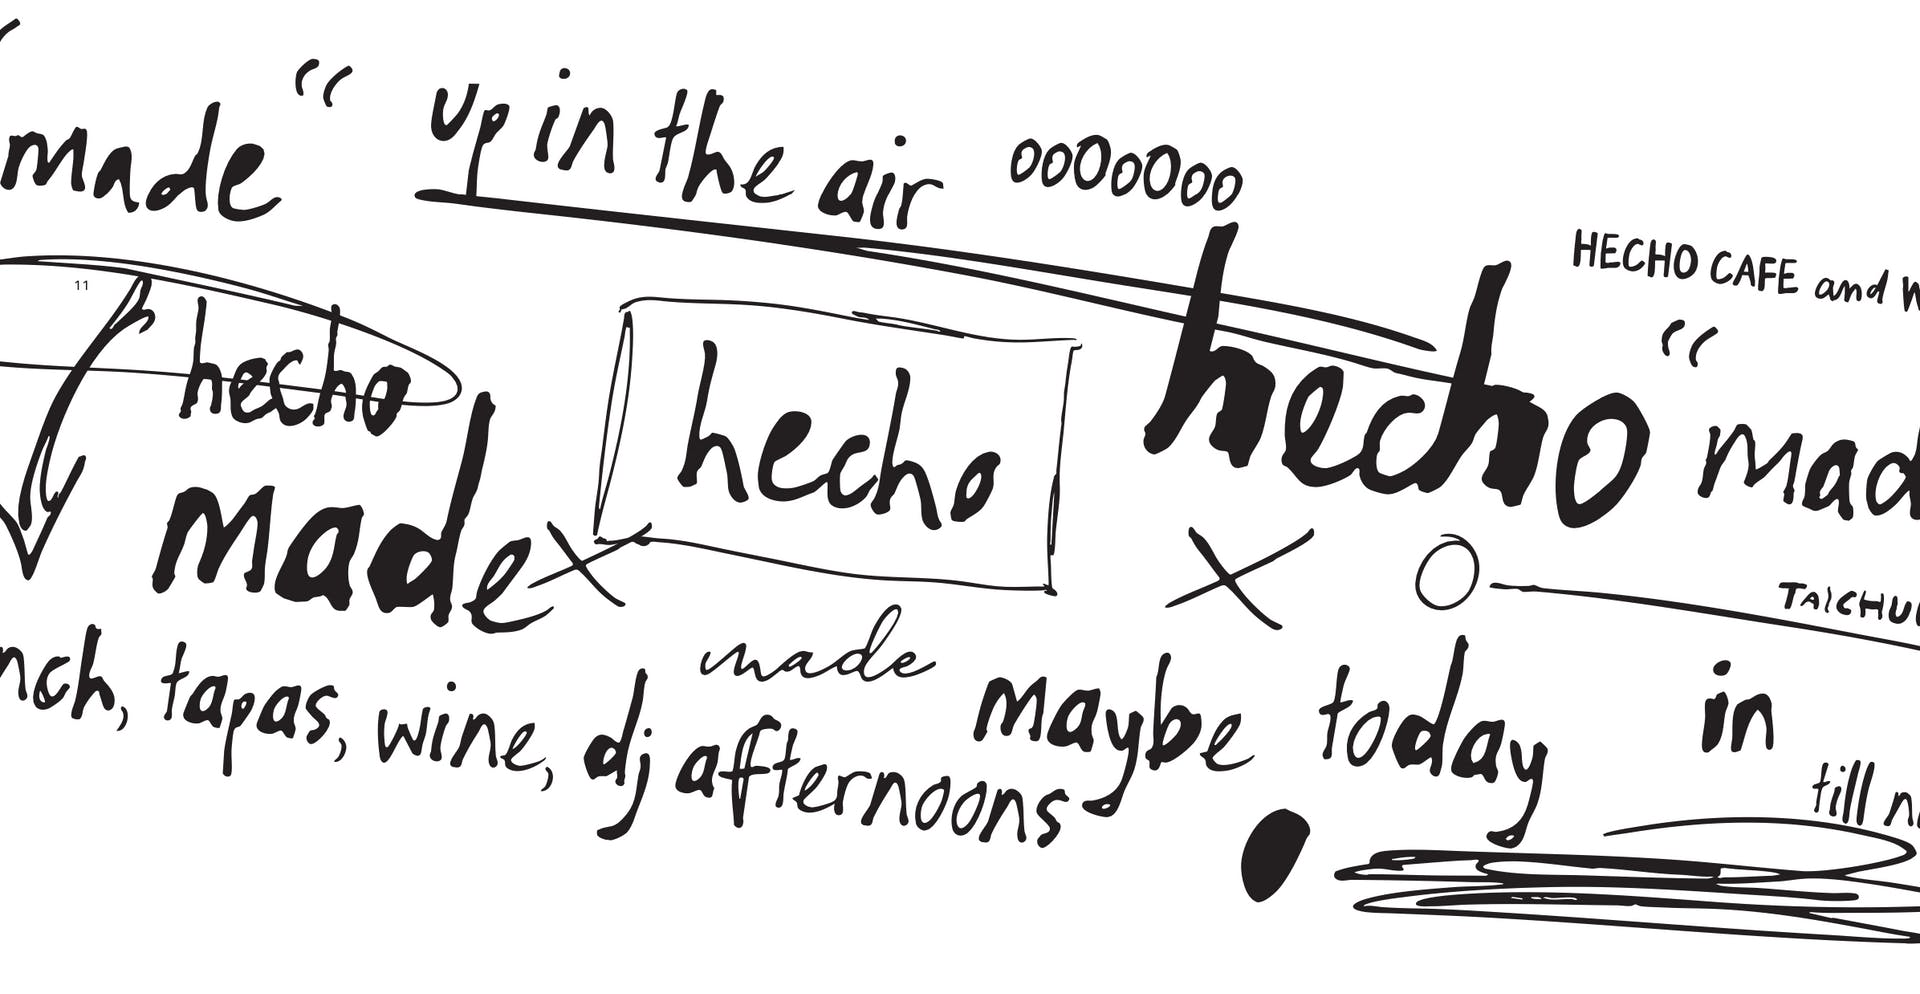 made “ up in the air ooooooo
HECHO CAFE and
11
hecho
hecho
hecho “
made
made
maybe today in
tapas, wine, dj afternoons
till